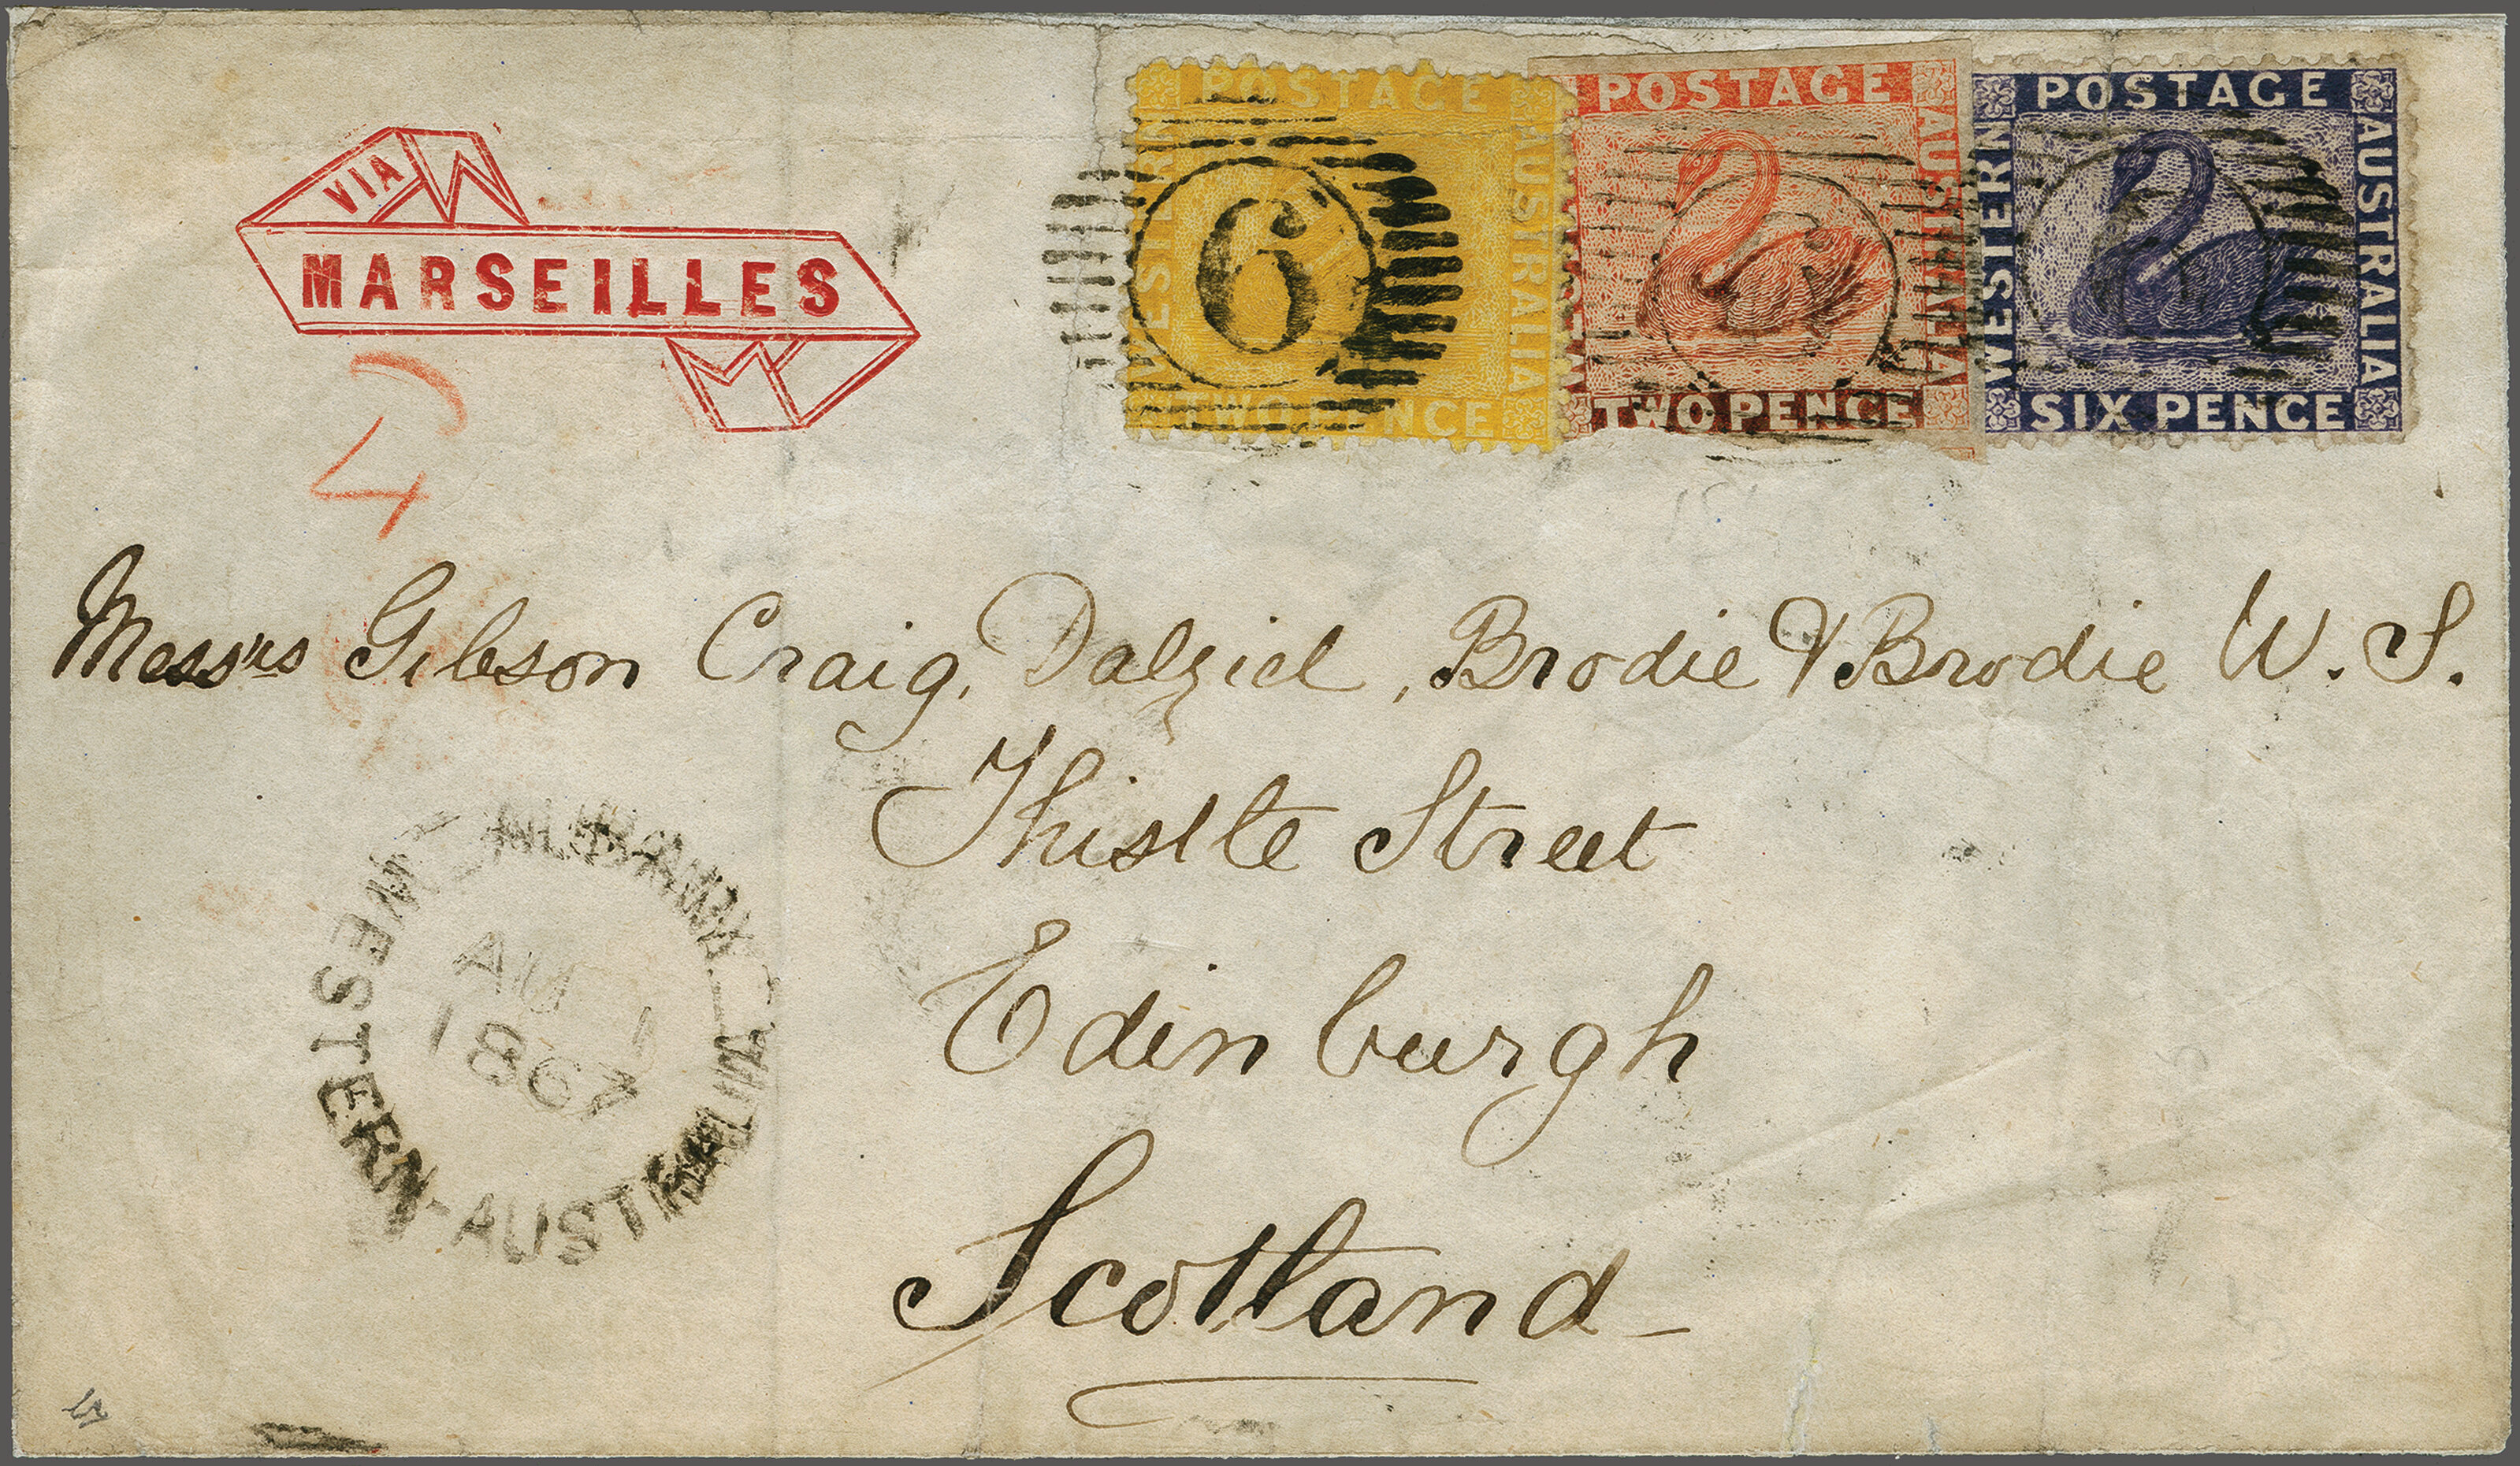 VIA
MARSEILLES
POSTAGE
WESTERN
AUSTRALIA
TWO PENCE
6
POSTAGE
AUSTRALIA
TWO PENCE
POSTAGE
WESTERN
AUSTRALIA
SIX PENCE
Messrs Gibson Craig, Dalziel, Brodie & Brodie W. S.
Thistle Street
Edinburgh
Scotland
AU 1
1867
WESTERN-AUSTRALIA